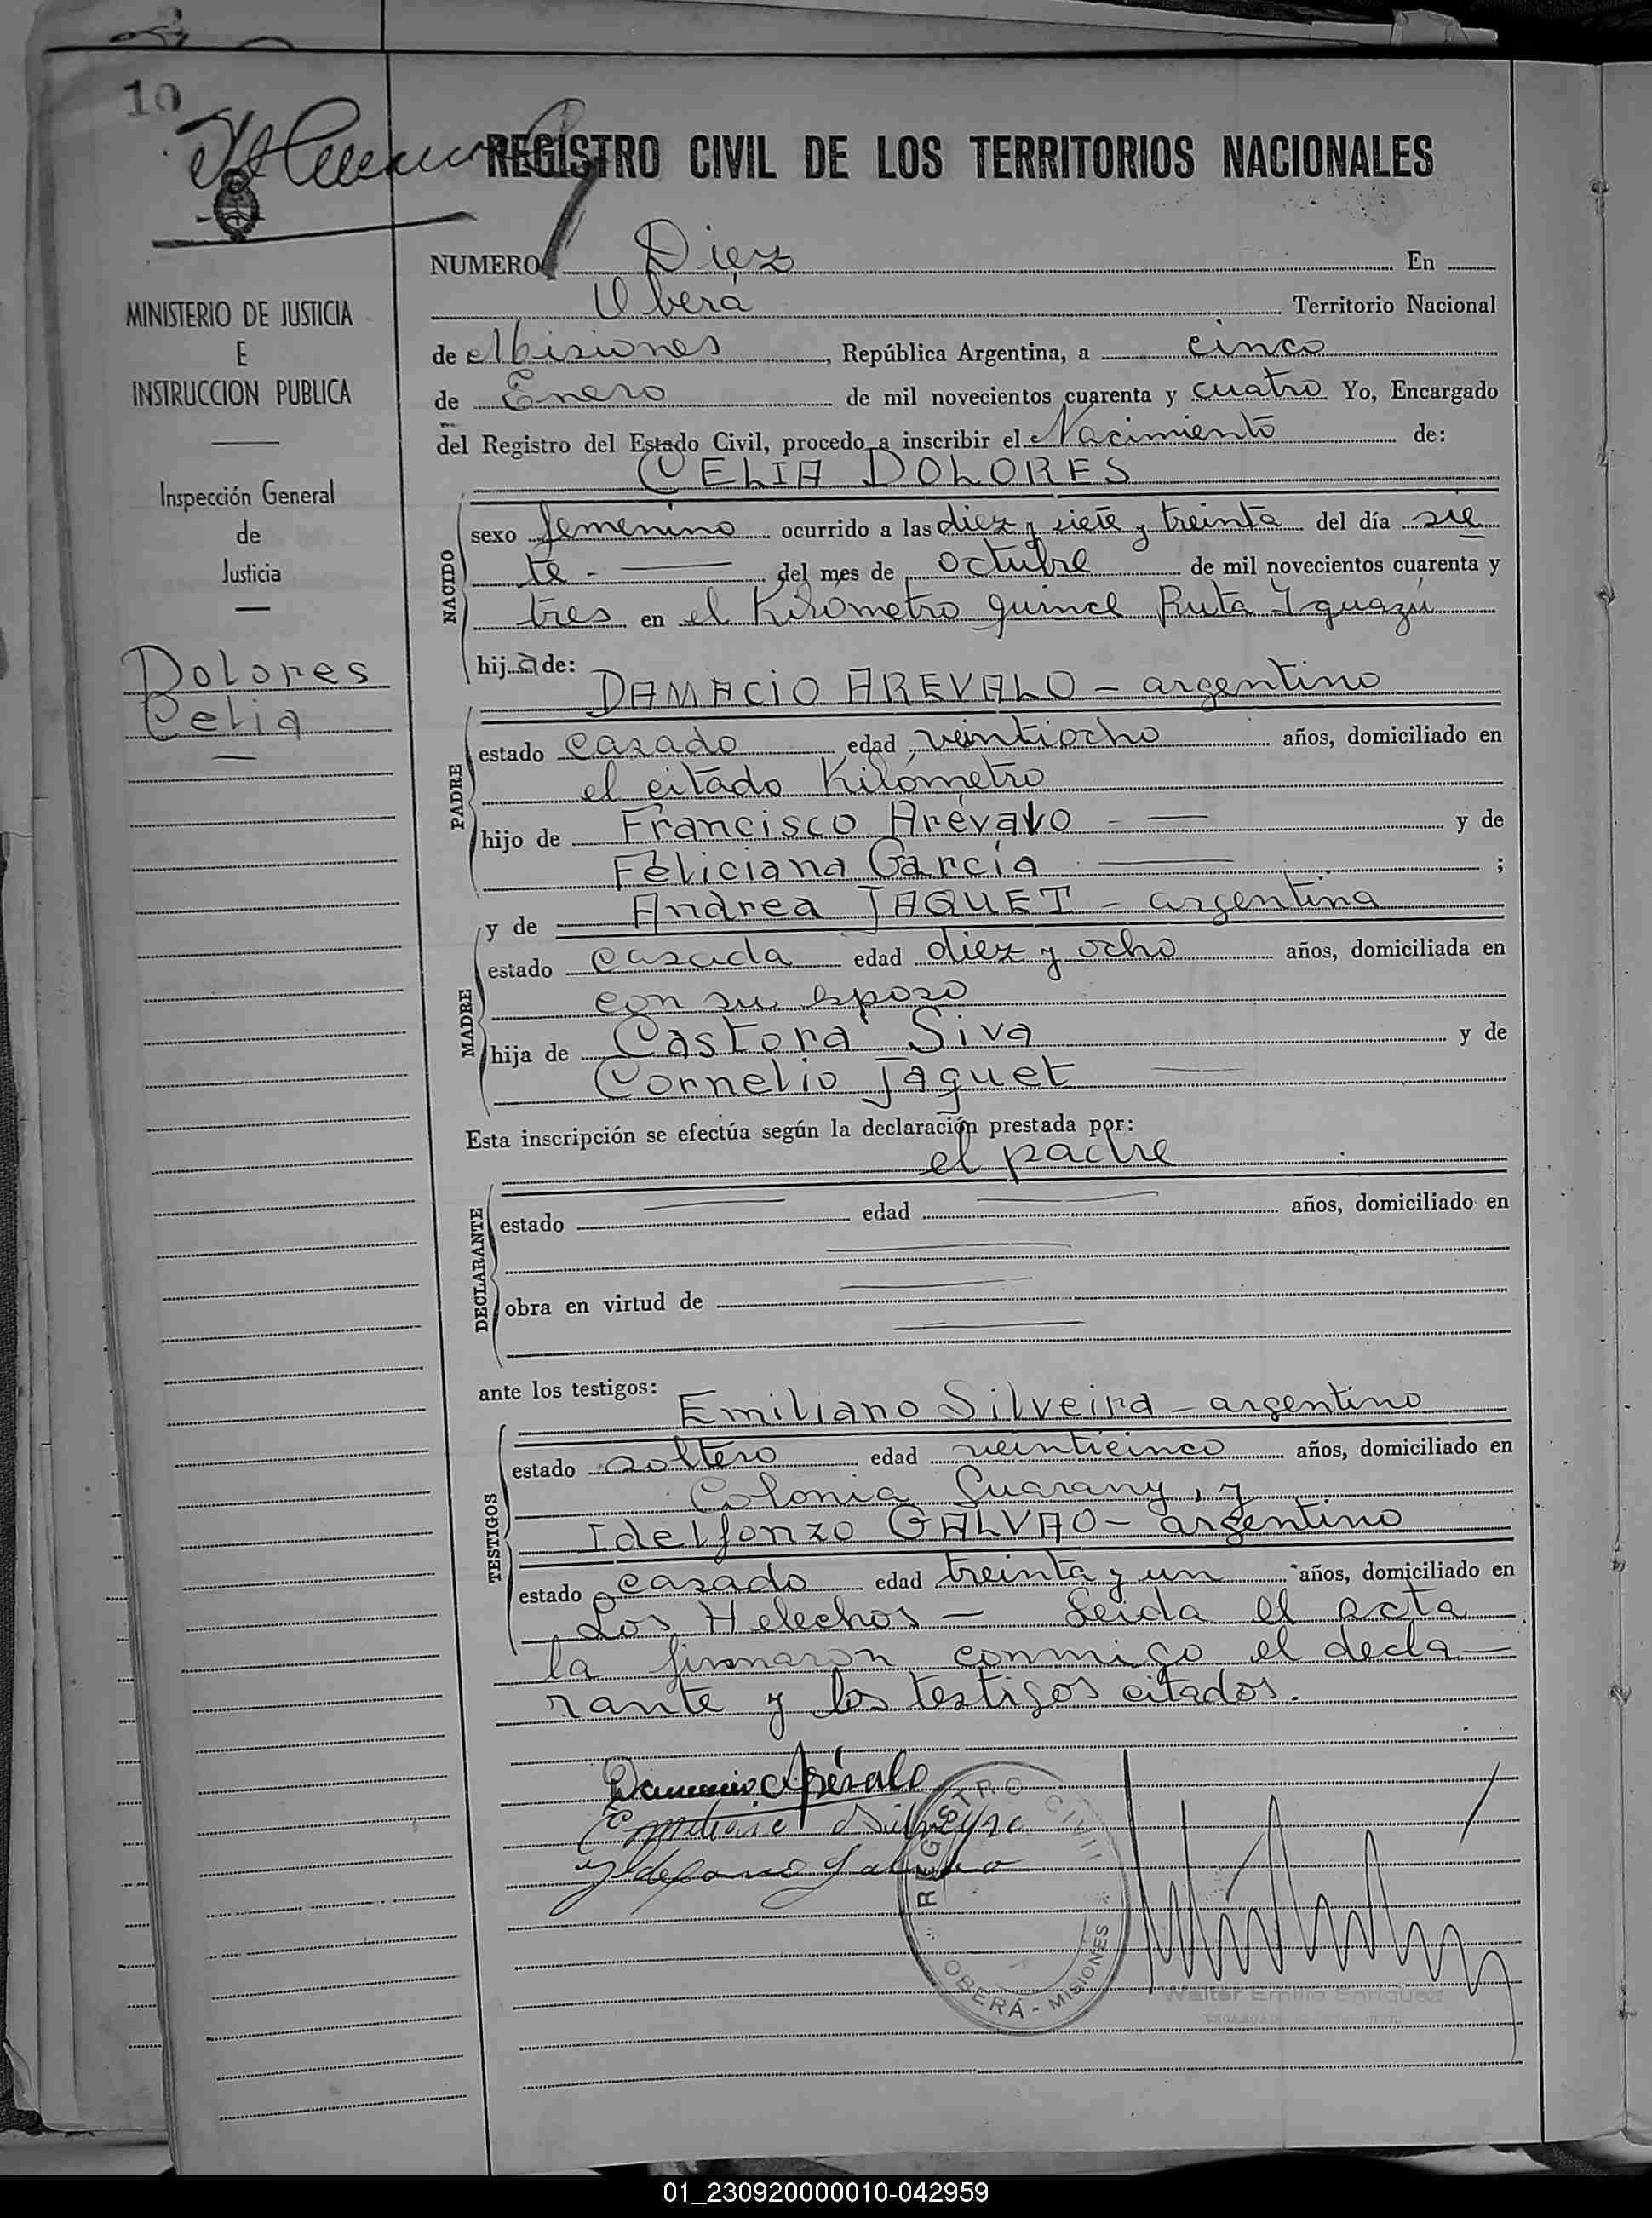 10
REGISTRO CIVIL DE LOS TERRITORIOS NACIONALES
NUMERO Diez En
Oberá Territorio Nacional
de Misiones, República Argentina, a cinco
de Enero de mil novecientos cuarenta y cuatro Yo, Encargado
del Registro del Estado Civil, procedo a inscribir el Nacimiento de:
CELIA DOLORES
MINISTERIO DE JUSTICIA
E
INSTRUCCION PUBLICA
Inspección General
de
Justicia
Dolores
Celia
NACIDO
sexo femenino ocurrido a las diez y siete y treinta del día sie
te - del mes de octubre de mil novecientos cuarenta y
tres en el Kilómetro quince Ruta Iguazú
hija de:
DAMACIO AREVALO - argentino
PADRE
estado casado edad veintiocho años, domiciliado en
el citado Kilómetro
hijo de Francisco Arévalo - y de
Feliciana García ;
y de Andrea JAQUET - argentina
MADRE
estado casada edad diez y ocho años, domiciliada en
con su esposo
hija de Castora Siva y de
Cornelio Jaquet
Esta inscripción se efectúa según la declaración prestada por:
el padre
DECLARANTE
estado edad años, domiciliado en
obra en virtud de
ante los testigos:
Emiliano Silveira - argentino
TESTIGOS
estado soltero edad veinticinco años, domiciliado en
Colonia Guarany, y
Idelfonzo GALVAO - argentino
estado casado edad treinta y un años, domiciliado en
Los Helechos - Leida el acta
la firmaron conmigo el decla-
rante y los testigos citados.
Damacio Arévalo
Emiliano Silveyra
Yldefonso Galvao
REGISTRO CIVIL
OBERÁ - MISIONES
Walter Emilio Enriquez
01_230920000010-042959